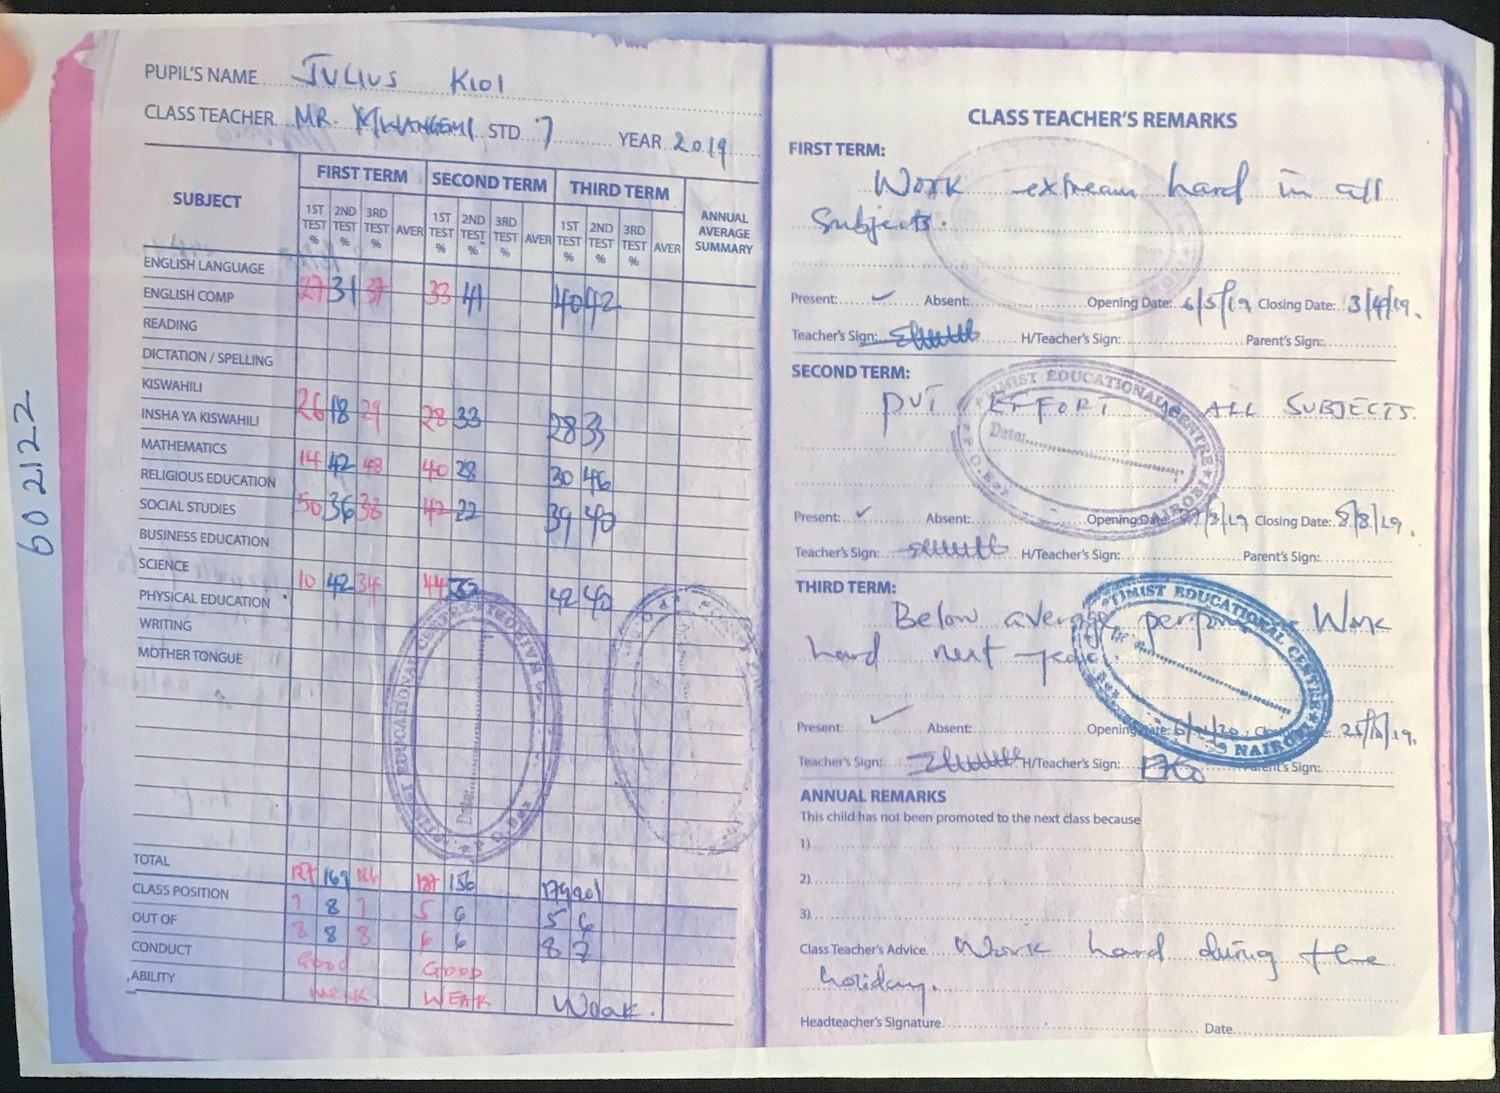 PUPIL'S NAME JULIUS KIOI
CLASS TEACHER MR. MWANGEMI STD 7 YEAR 2019
SUBJECT FIRST TERM SECOND TERM THIRD TERM ANNUAL AVERAGE SUMMARY
1ST TEST % 2ND TEST % 3RD TEST % AVER 1ST TEST % 2ND TEST % 3RD TEST % AVER 1ST TEST % 2ND TEST % 3RD TEST % AVER
ENGLISH LANGUAGE
ENGLISH COMP 27 31 37 33 41 40 42
READING
DICTATION / SPELLING
KISWAHILI
INSHA YA KISWAHILI 26 18 29 28 33 28 33
MATHEMATICS
RELIGIOUS EDUCATION 14 42 48 40 28 30 46
SOCIAL STUDIES 50 36 38 42 22 39 40
BUSINESS EDUCATION
SCIENCE
PHYSICAL EDUCATION 10 42 34 44 42 40
WRITING
MOTHER TONGUE
TOTAL 127 169 156
CLASS POSITION 7 8 7 5 6 5 6
OUT OF 8 8 8 6 6 8 7
CONDUCT Good GOOD
ABILITY WEAK WEAK Weak.
602122
CLASS TEACHER'S REMARKS
FIRST TERM:
Work extream hard in all
Subjects.
Present: ✓ Absent: Opening Date: 6/5/19 Closing Date: 3/4/19.
Teacher's Sign: H/Teacher's Sign: Parent's Sign:
SECOND TERM:
PUT EFFORT ALL SUBJECTS.
Present: ✓ Absent: Opening Date: Closing Date: 8/8/19.
Teacher's Sign: H/Teacher's Sign: Parent's Sign:
THIRD TERM:
Below average Work
hard next
Present: ✓ Absent: Opening Date:
Teacher's Sign: H/Teacher's Sign: Parent's Sign:
EDUCATIONAL CENTRE
NAIROBI
Date:
ANNUAL REMARKS
This child has not been promoted to the next class because
1)
2)
3)
Class Teacher's Advice Work hard during the
holiday.
Headteacher's Signature Date